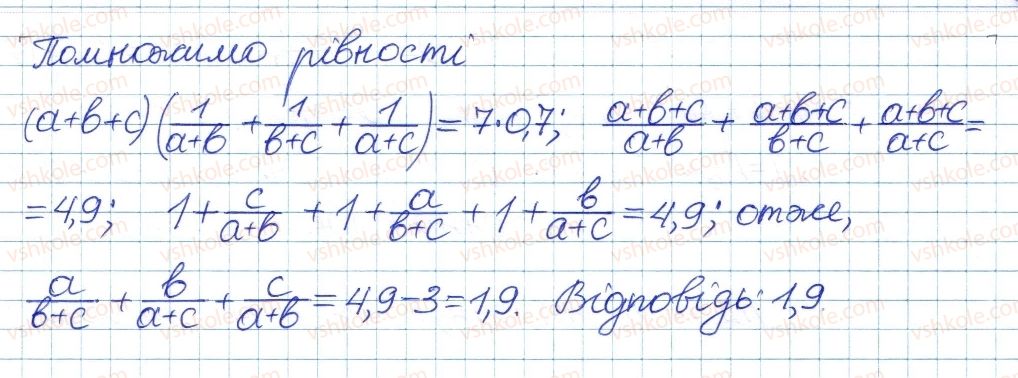 Помножимо рівності
(a+b+c)(1/(a+b) + 1/(b+c) + 1/(a+c)) = 7·0,7; (a+b+c)/(a+b) + (a+b+c)/(b+c) + (a+b+c)/(a+c) =
= 4,9; 1 + c/(a+b) + 1 + a/(b+c) + 1 + b/(a+c) = 4,9; отже,
a/(b+c) + b/(a+c) + c/(a+b) = 4,9 - 3 = 1,9. Відповідь: 1,9.
vshkole.com